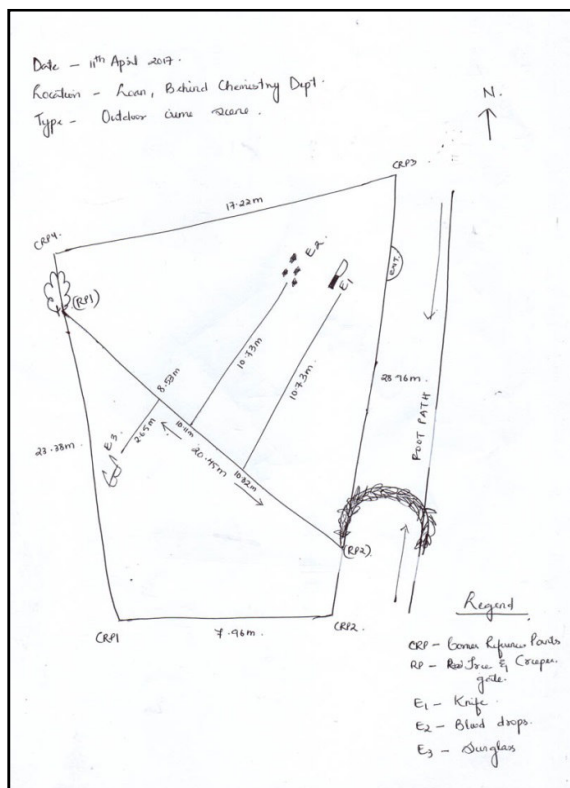 Date - 11th April 2017.
Location - Loan, Behind Chemistry Dept.
Type - Outdoor crime scene.
N.
CRP3
17.22m
CRP4
E2
E1
(RP1)
ENT.
10.73m
10.73m
8.53m
28.96m
FOOT PATH
2.65m
E3
10.11m
20.45m
10.82m
23.38m
(RP2)
CRP1
7.96m
CRP2
Legend
CRP - Corner Reference Points
RP - Tree & Creeper
gate.
E1 - Knife
E2 - Blood drops.
E3 - Sunglass